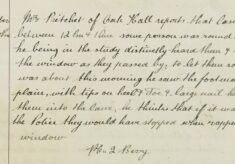 Mrs Pritchet of Oak Hall reports that
between 12 & 1 some person was round
he being in the study distinctly heard them &
the window as they passed by, to let them
was about this morning he saw the footma
plain, with tips on heel & Toe & large nail
them into the lawn, he thinks that if it wa
the Police they would have stopped when rappe
window
Berry